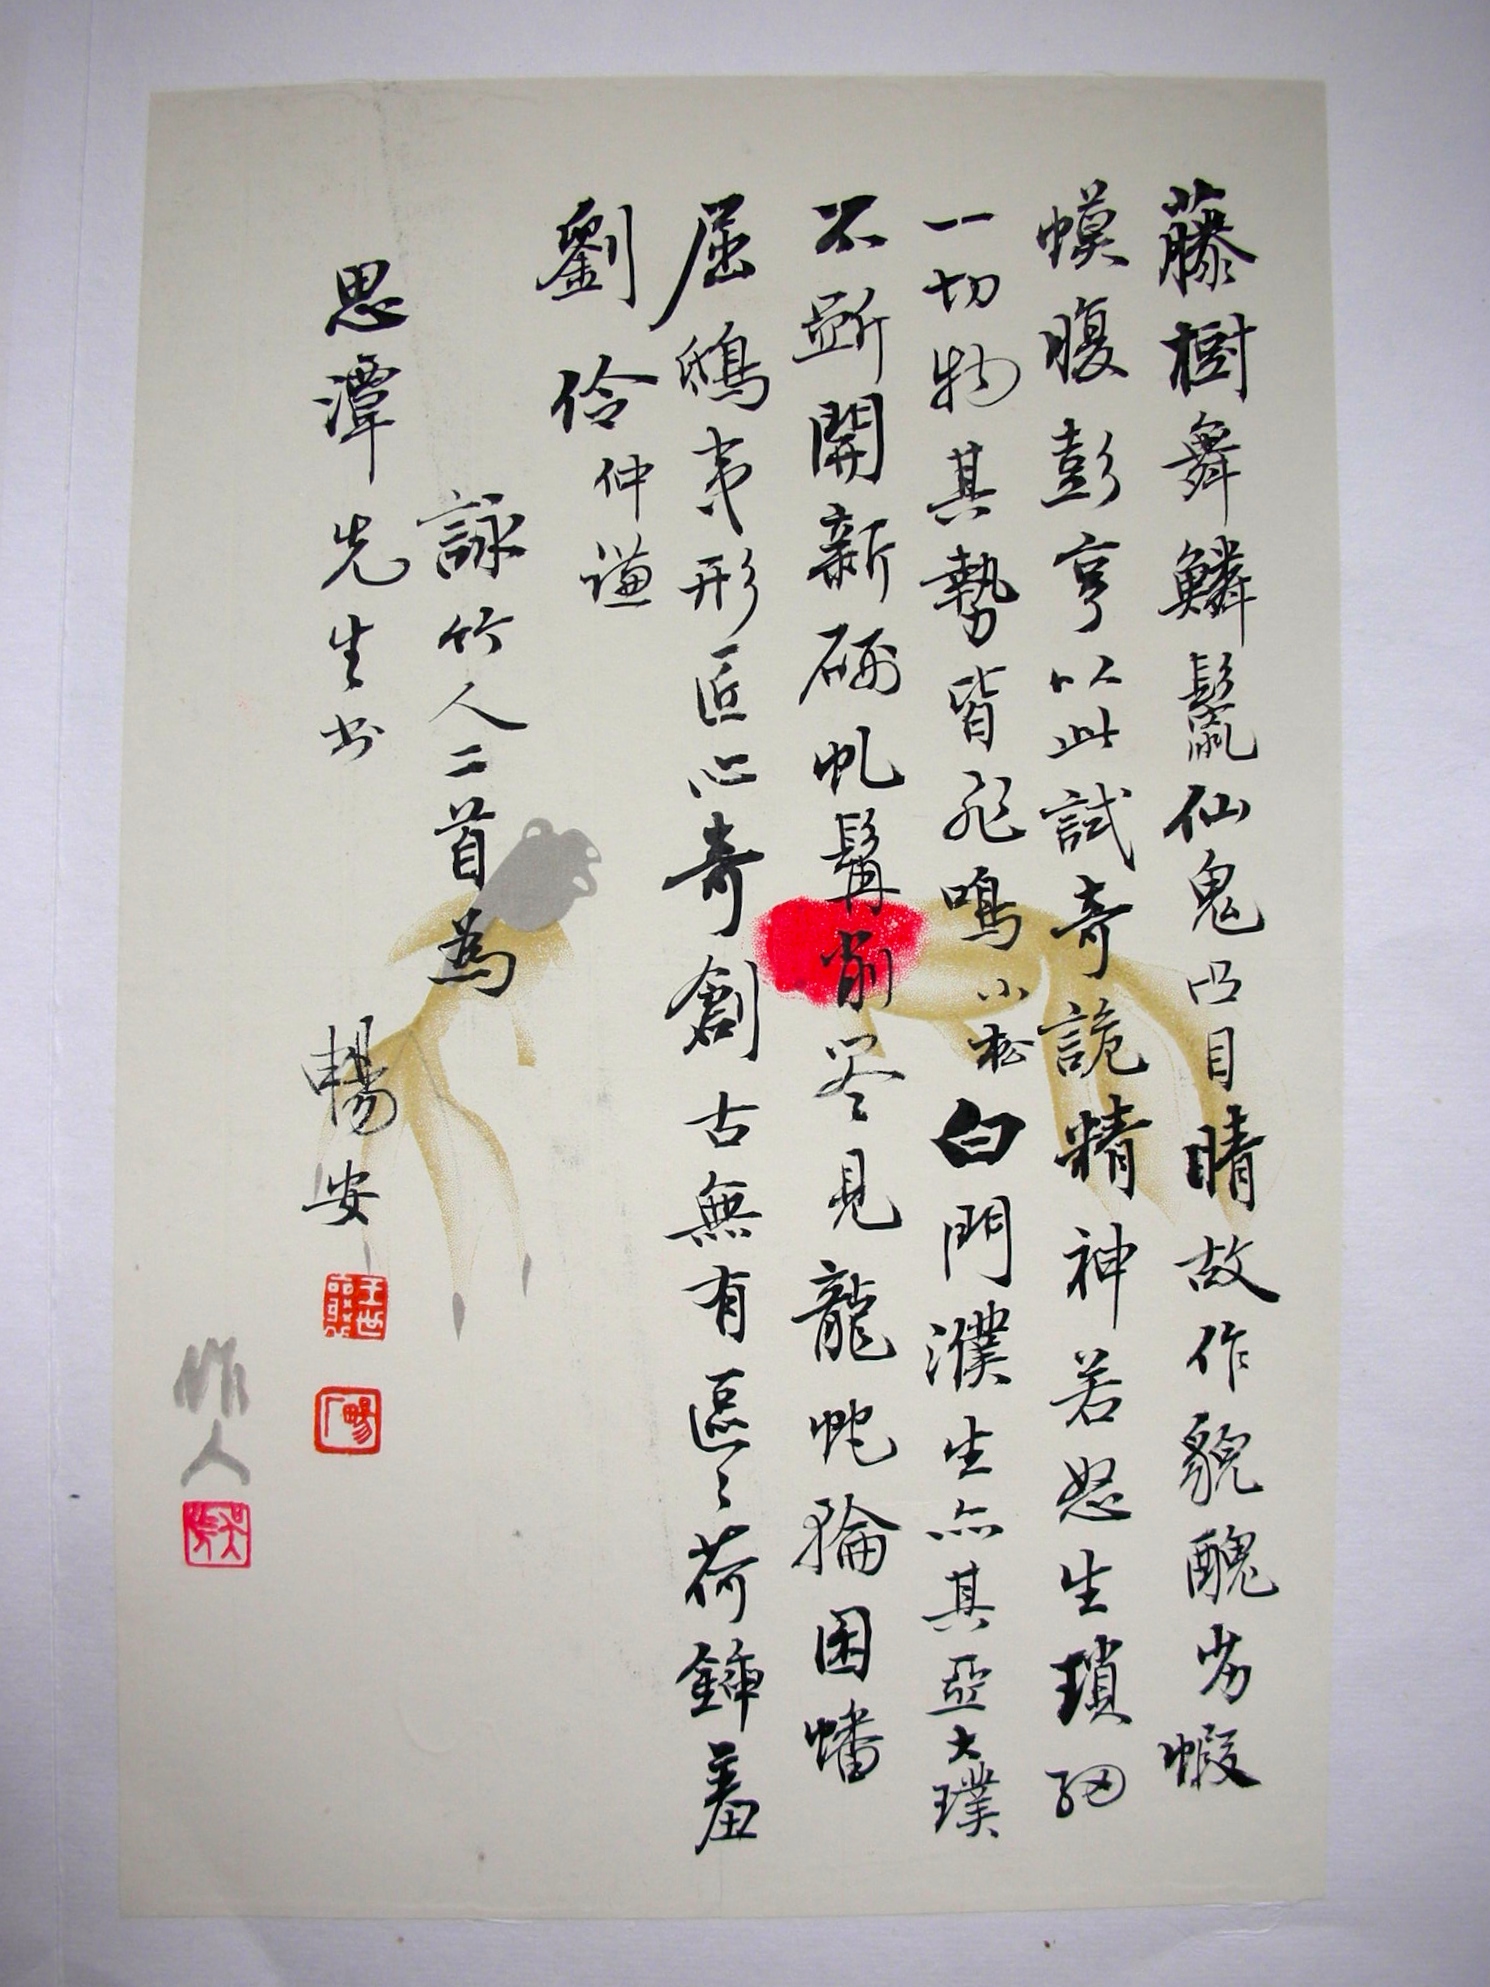 藤樹舞鱗鬣仙鬼凸目睛故作貌醜劣蝦
蟆腹彭亨以此試奇詭精神若怒生瑣細
一切物其勢皆飛鳴小松白門濮生亦其亞大璞
不斲開新硎虬髯削尽見龍蛇輪囷蟠
屈鴟夷形匠心奇創古無有區々荷鍤羞
劉伶仲謙
詠竹人二首為
思潭先生书 暢安
王世襄
暢厂
作人
吳